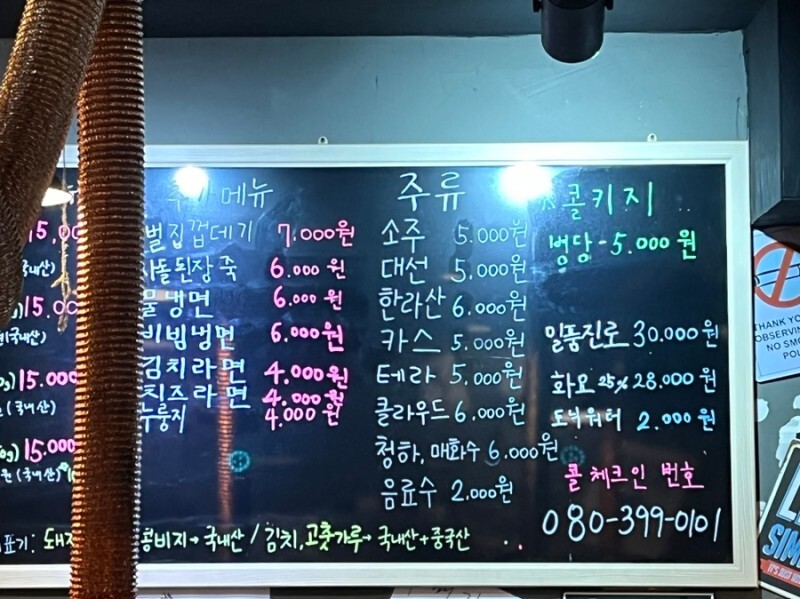 15,00
국내산)
)15.00
(국내산)
g)15.000
(국내산)
g)15.000
원(국내산)
메뉴
벌집껍데기 7.000원
차돌된장죽 6.000원
물냉면 6.000원
비빔냉면 6.000원
김치라면 4.000원
치즈라면 4.000원
누룽지 4.000원
주류
소주 5.000원
대선 5.000원
한라산 6.000원
카스 5.000원
테라 5.000원
클라우드 6.000원
청하, 매화수 6.000원
음료수 2.000원
콜키지
병당 - 5.000원
일품진로 30.000원
화요 25% 28.000원
토닉워터 2.000원
콜 체크인 번호
080-399-0101
표기: 돼지 콩비지→국내산 / 김치, 고춧가루→국내산+중국산
THANK YO
OBSERVIN
NO SMO
POL
SIM